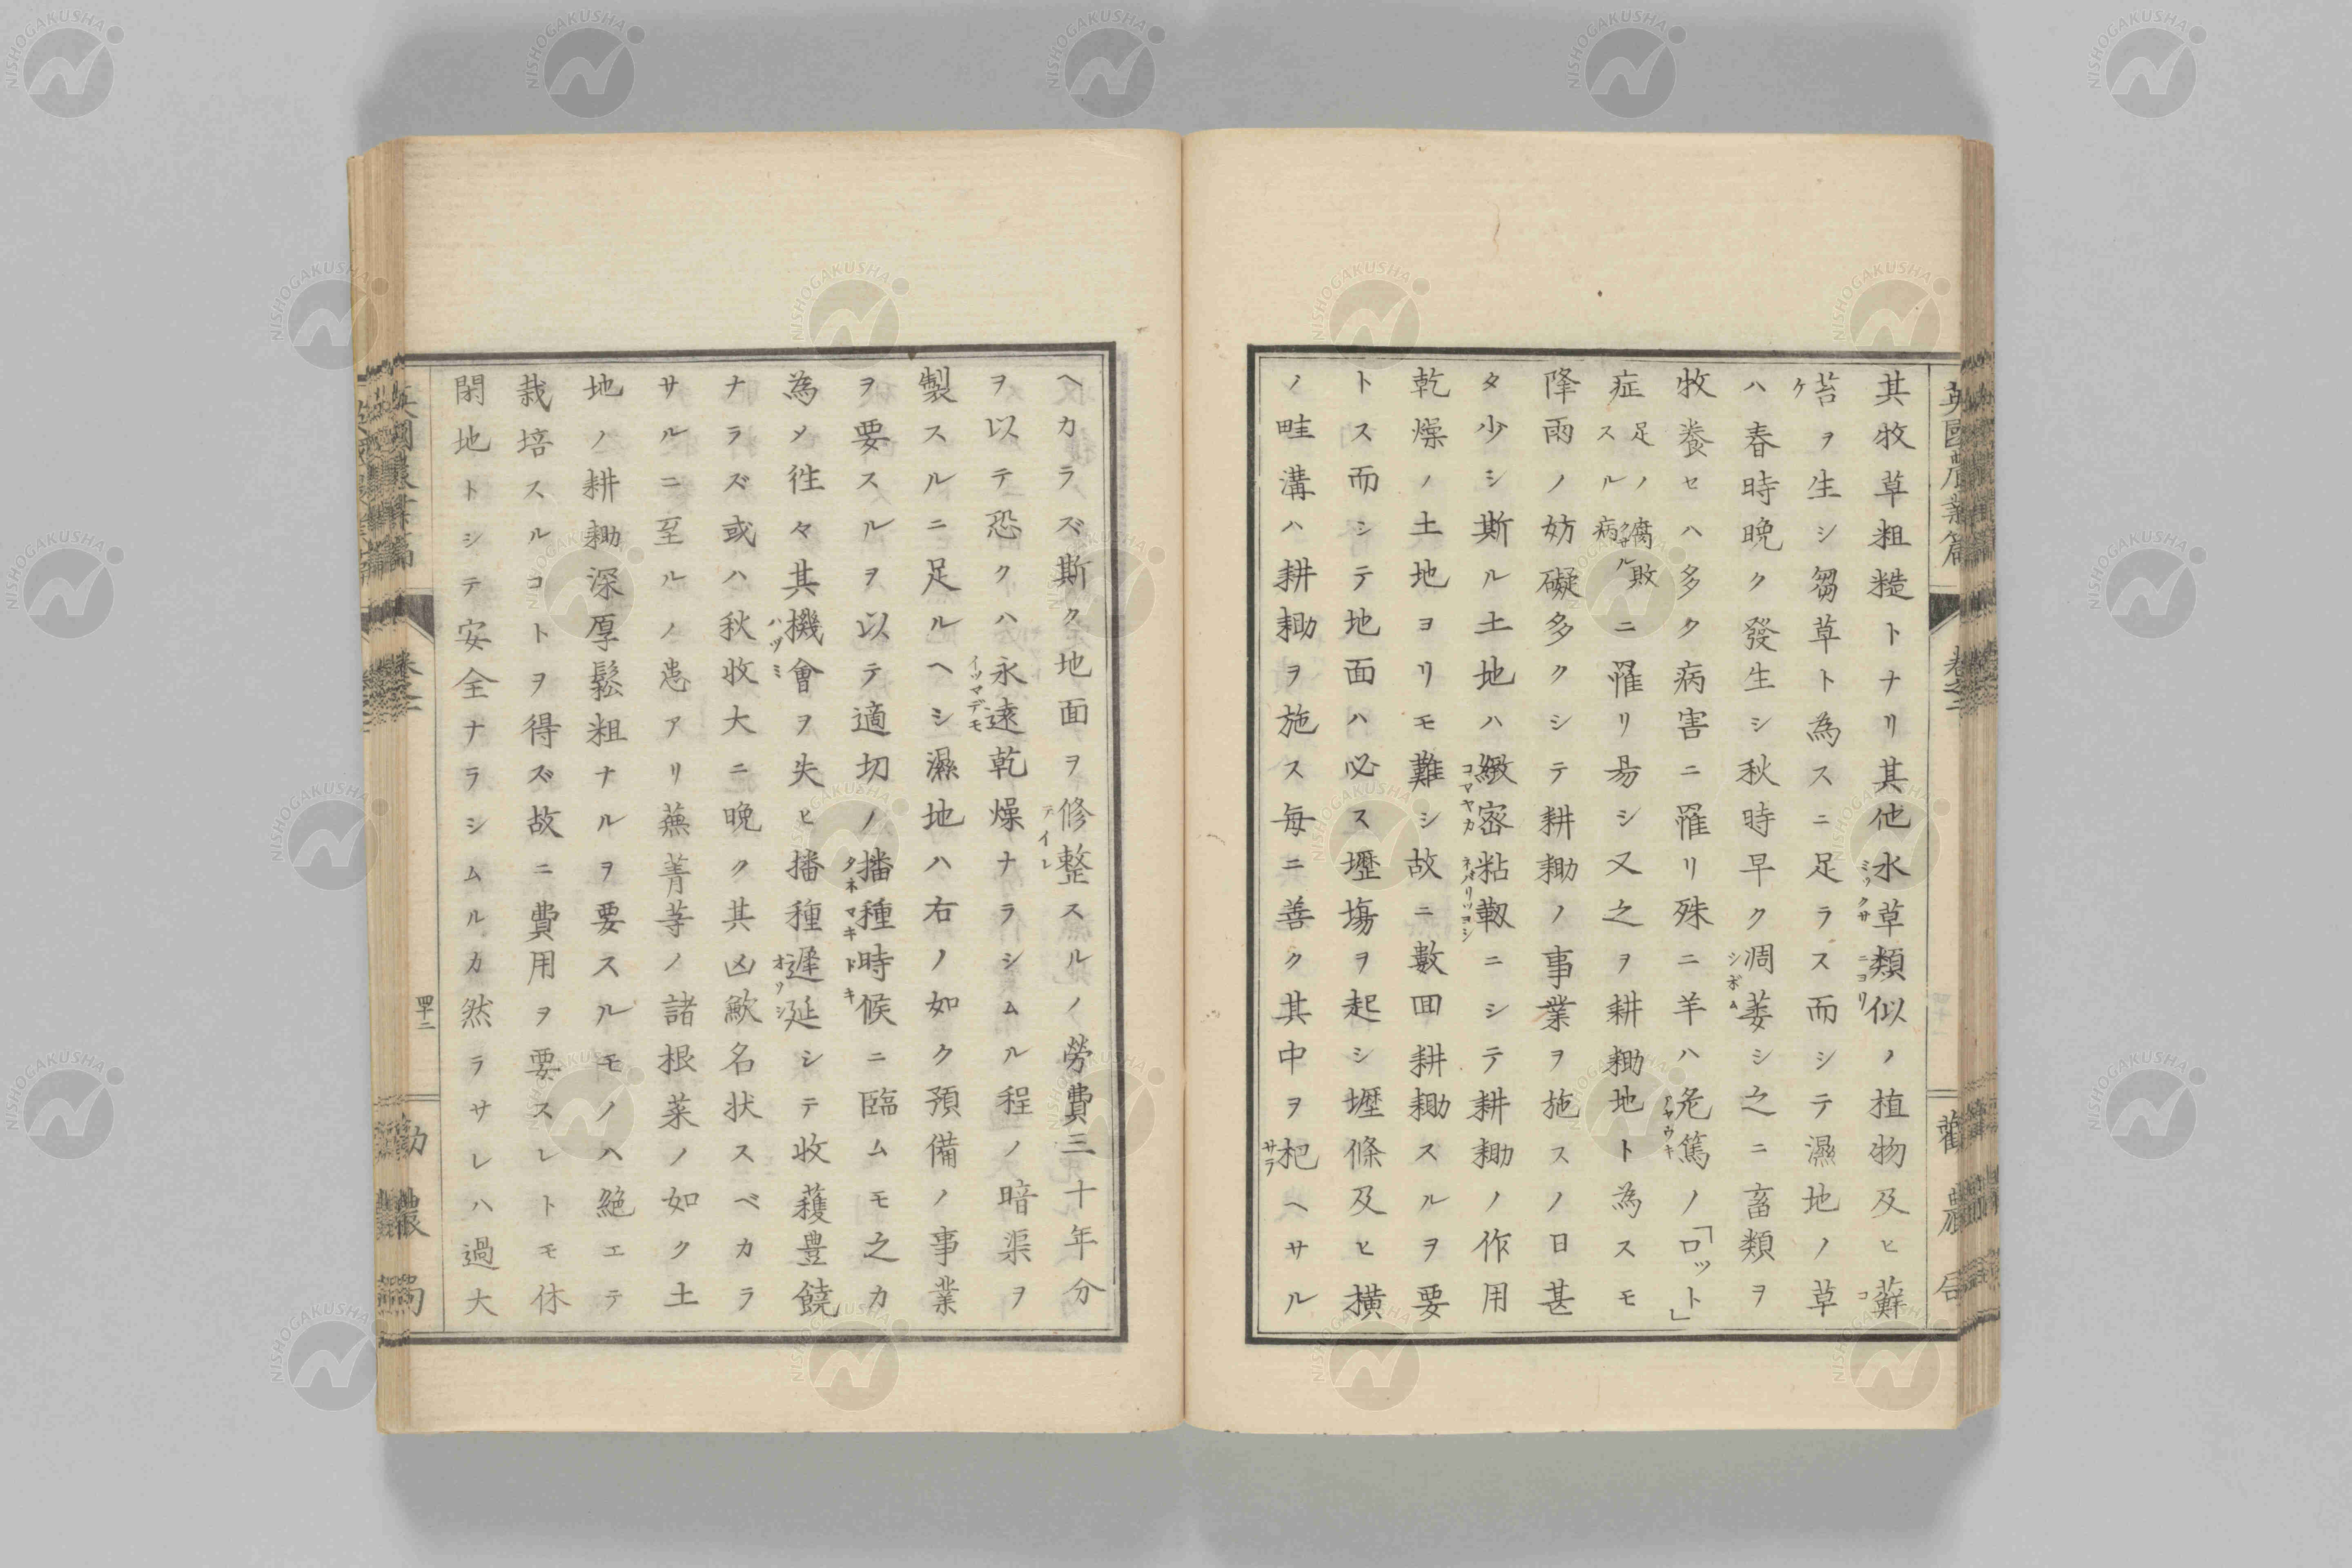 其牧草粗糙トナリ其他水草類似ノ植物及ヒ蘚
苔ヲ生シ芻草ト為スニ足ラス而シテ濕地ノ草
ハ春時晩ク發生シ秋時早ク凋萎シ之ニ畜類ヲ
牧養セハ多ク病害ニ罹リ殊ニ羊ハ危篤ノ「ロット」
症足ノ腐敗スル病ニ罹リ易シ又之ヲ耕耡地ト為スモ
降雨ノ妨礙多クシテ耕耡ノ事業ヲ施スノ日甚
タ少シ斯ル土地ハ緻密粘靱ニシテ耕耡ノ作用
乾燥ノ土地ヨリモ難シ故ニ數回耕耡スルヲ要
トス而シテ地面ハ必ス壢塲ヲ起シ壢條及ヒ横
ノ畦溝ハ耕耡ヲ施ス毎ニ善ク其中ヲ杷ヘサル
ヘカラズ斯ク地面ヲ修整スルノ勞費三十年分
ヲ以テ恐クハ永遠乾燥ナラシムル程ノ暗渠ヲ
製スルニ足ルヘシ濕地ハ右ノ如ク預備ノ事業
ヲ要スルヲ以テ適切ノ播種時候ニ臨ムモ之カ
為メ徃々其機會ヲ失ヒ播種遲延シテ收穫豊饒
ナラズ或ハ秋收大ニ晩ク其凶歉名状スベカラ
サルニ至ルノ患アリ蕪菁等ノ諸根菜ノ如ク土
地ノ耕耡深厚鬆粗ナルヲ要スルモノハ絶エテ
栽培スルコトヲ得ズ故ニ費用ヲ要スレトモ休
閑地トシテ安全ナラシムルカ然ラサレハ過大
四十二